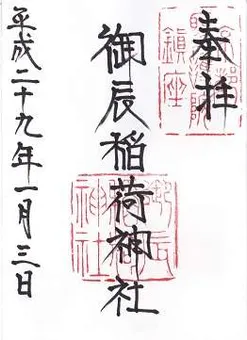 奉拝
鎮座
御辰稲荷神社
御辰
神社
平成二十九年一月三日